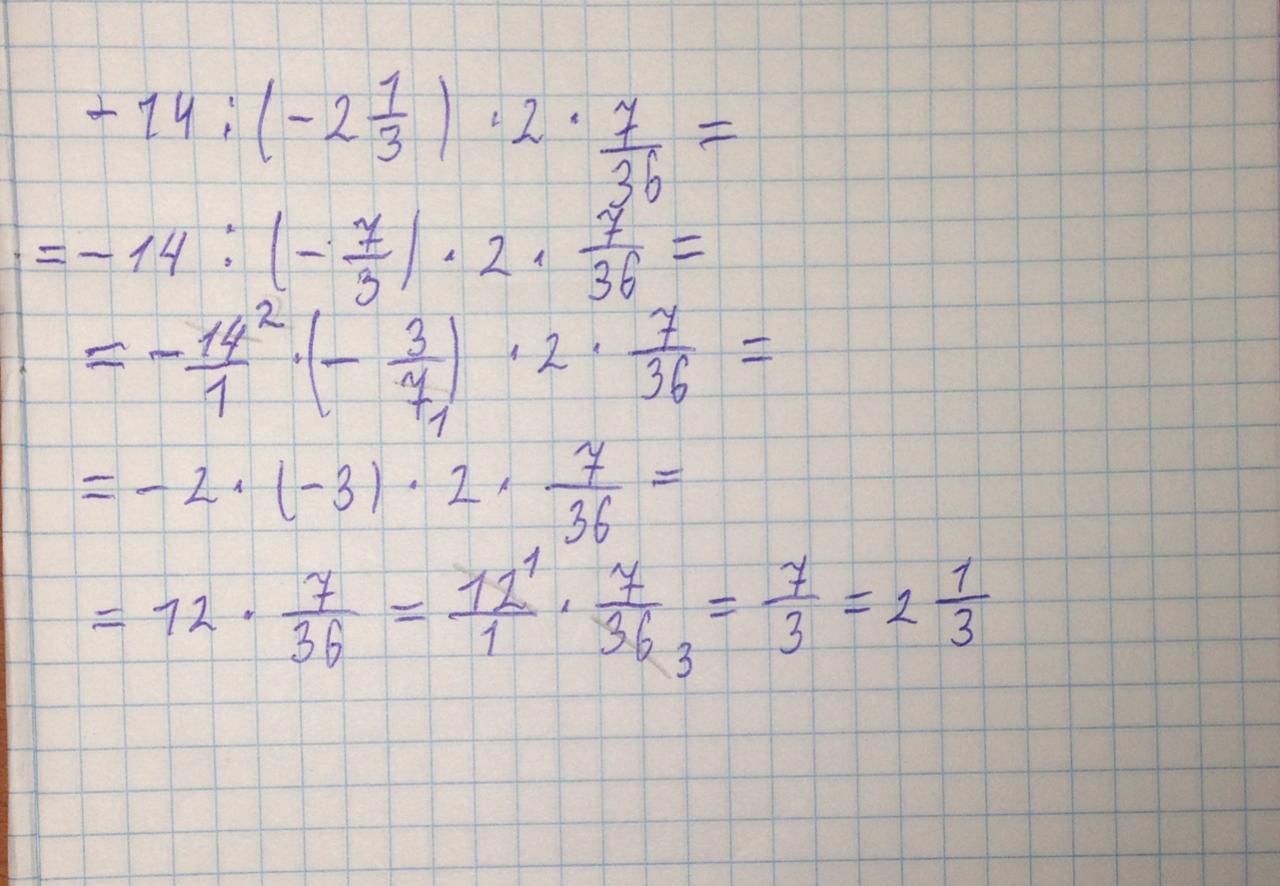 -14 : (-2 1/3) · 2 · 7/36 =
= -14 : (-7/3) · 2 · 7/36 =
= -14²/1 · (-3/7₁) · 2 · 7/36 =
= -2 · (-3) · 2 · 7/36 =
= 12 · 7/36 = 12¹/1 · 7/36₃ = 7/3 = 2 1/3